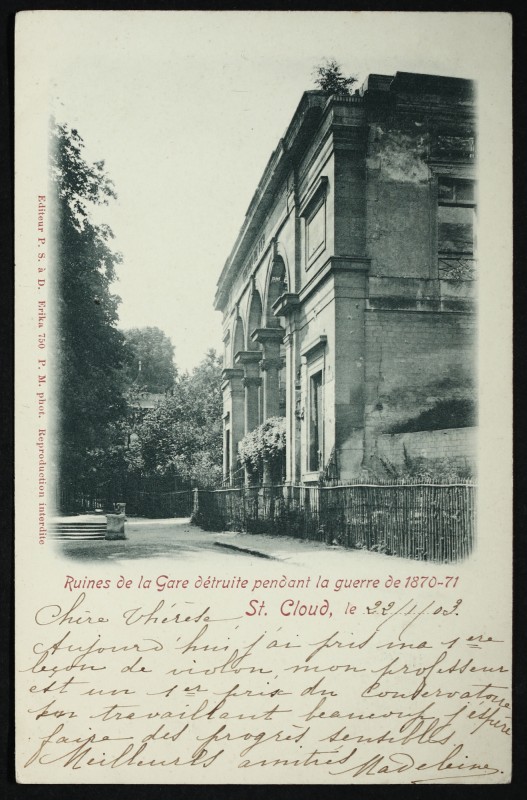 Editeur P. S. à D. Erika 750 P. M. phot. Reproduction interdite
Ruines de la Gare détruite pendant la guerre de 1870-71
St. Cloud, le 22/1/03.
Chère Thérèse
Aujourd'hui j'ai pris ma 1ere
leçon de violon mon professeur
est un 1er prix du Conservatoire
en travaillant beaucoup j'éspère
faire des progrès sensibles.
Meilleures amitiés Madeleine.